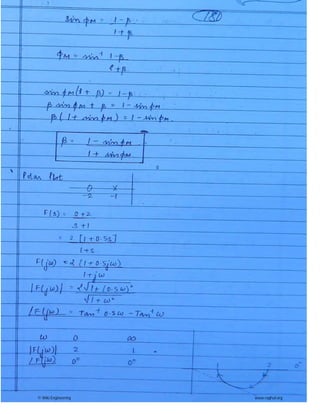 sin φm = 1-β / 1+β
180
φm = sin⁻¹ 1-β / 1+β
sin φm (1 + β) = 1-β
β sin φm + β = 1 - sin φm
β (1 + sin φm) = 1 - sin φm
β = 1 - sin φm / 1 + sin φm
Polar Plot
0 x
-2 -1
F(s) = s+2 / s+1
= 2 [1 + 0.5s] / 1+s
F(jω) = 2 (1+0.5jω) / 1+jω
|F(jω)| = 2√1+(0.5ω)² / √1+ω²
∠F(jω) = Tan⁻¹ 0.5ω - Tan⁻¹ ω
ω 0 ∞
|F(jω)| 2 1
∠F(jω) 0° 0°
1 2 0°
© Wiki Engineering www.raghul.org